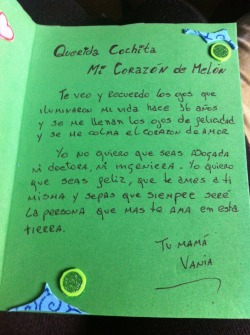 Querida Cochita
Mi Corazón de Melón
Te veo y recuerdo los ojos que
iluminaron mi vida hace 36 años
y se me llenan los ojos de felicidad
y se me colma el corazon de amor
Yo no quiero que seas abogada
ni doctora, ni ingeniera. Yo quiero
que seas feliz, que te ames a ti
misma y sepas que siempre seré
la persona que mas te ama en esta
tierra.
Tu mamá
Vania